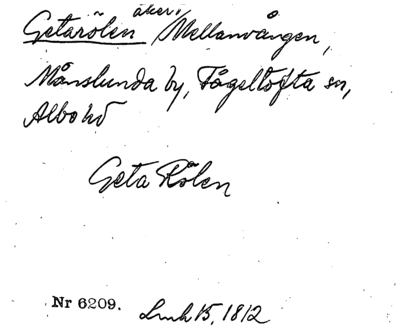 Getarölen åker i Mellanvången,
Månslunda by, Fågeltofta sn,
Albo hd
Geta Rölen
Nr 6209.
15, 1812